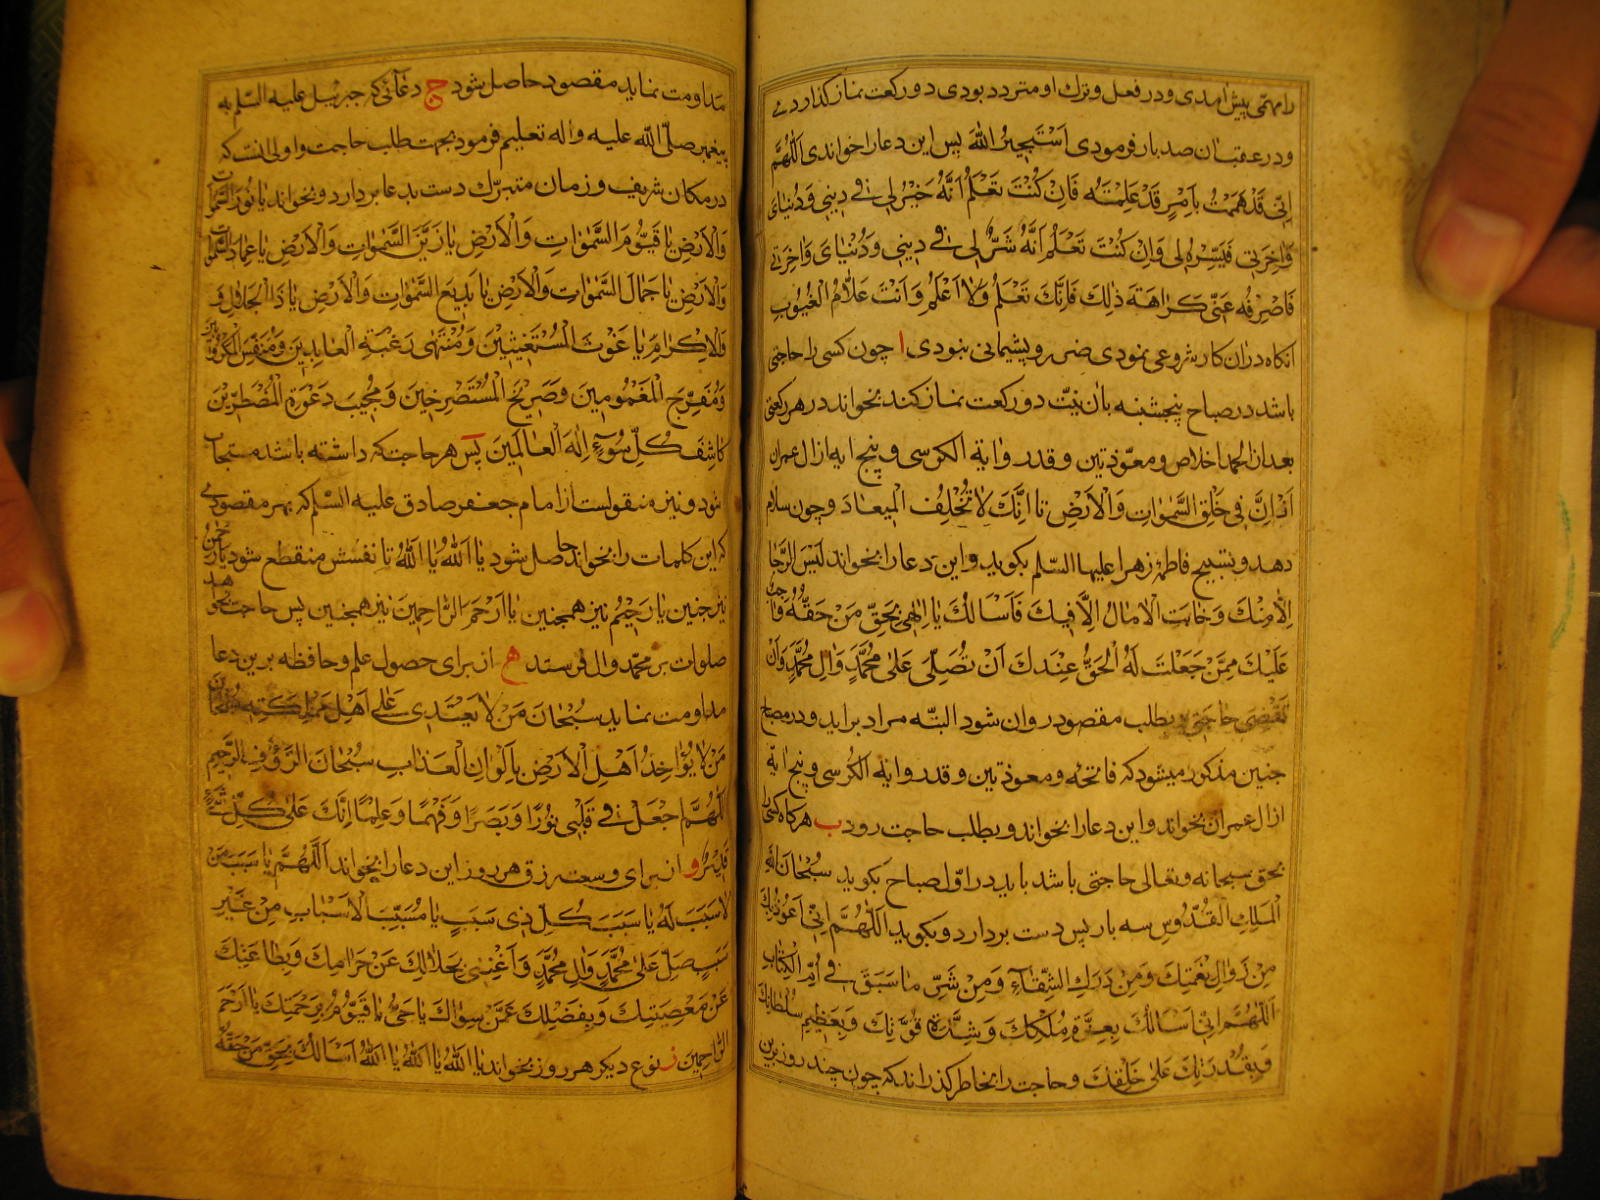 را مهمّی پیش آمدی و در فعل و ترک او متردد بودی دو رکعت نماز گذاردی
و در عقب آن صد بار فرمودی اَسْتَخیرُ اللهَ پس این دعا را خواندی اَللّهُمَّ
اِنّی قَدْ هَمَمْتُ بِاَمْرٍ قَدْ عَلِمْتَهُ فَاِنْ کُنْتَ تَعْلَمُ اَنَّهُ خَیْرٌ لی فی دینی وَدُنْیایَ
وَاخِرَتی فَیَسِّرْهُ لی وَاِنْ کُنْتَ تَعْلَمُ اَنَّهُ شَرٌّ لی فی دینی وَدُنْیایَ وَاخِرَتی
فَاصْرِفْهُ عَنّی کَراهَةَ ذلِکَ فَاِنَّکَ تَعْلَمُ وَلا اَعْلَمُ وَاَنْتَ عَلّامُ الْغُیُوبِ
انکاه در ان کار شروعی نمودی ضرر و پشیمانی نبودی ا چون کسی را حاجتی
باشد در صباح پنجشنبه بان نیّت دو رکعت نماز کند بخواند در هر رکعتی
بعد از الحمد اخلاص و معوّذتین و قدر و ایة الکرسی و پنج ایه از ال عمران
اَنْ اِنَّ فی خَلْقِ السَّمواتِ وَالْاَرْضِ تا اِنَّکَ لا تُخْلِفُ الْمیعادَ و چون سلام
دهد و تسبیح فاطمهٔ زهرا علیها السّلم بکوید و این دعا را بخواند لَیْسَ الرَّجا
اِلّا مِنْکَ وَخابَتِ الْامالُ اِلّا فیکَ فَاَسْاَلُکَ یا اِلهی بِحَقِّ مَنْ حَقُّهُ واجِبٌ
عَلَیْکَ مِمَّنْ جَعَلْتَ لَهُ الْحَقَّ عِنْدَکَ اَنْ تُصَلِّیَ عَلی مُحَمَّدٍ وَالِ مُحَمَّدٍ وَاَنْ
تَقْضِیَ حاجَتی بطلب مقصود روان شود البتّه مراد براید و در مصباح
چنین مذکور میشود که فاتحه و معوذتین و قدر و ایة الکرسی و پنج ایه
از ال عمران بخواند و این دعا را بخواند و بطلب حاجت رود ب هرکاه کسی را
بحق سبحانه و تعالی حاجتی باشد باید در اوّل صباح بکوید سُبْحانَ اللهِ
الْمَلِکِ الْقُدُّوسِ سه بار پس دست بردارد و بکوید اَللّهُمَّ اِنّی اَعُوذُ بِکَ
مِنْ زَوالِ نِعْمَتِکَ وَمِنْ دَرَکِ الشِّقاءِ وَمِنْ شَرِّ ما سَبَقَ فی اُمِّ الْکِتابِ
اَللّهُمَّ اِنّی اَسْاَلُکَ بِعِزَّةِ مُلْکِکَ وَشِدَّةِ قُوَّتِکَ وَبِعَظیمِ سُلْطانِکَ
وَبِقُدْرَتِکَ عَلی خَلْقِکَ و حاجت را بخاطر کذراند که چون چند روز برین
مداومت نماید مقصود حاصل شود ج دعائی که جبرئیل علیه السّلم به
پیغمبر صلّی الله علیه واله تعلیم فرمود بجهت طلب حاجت و اولی انست که
در مکان شریف و زمان متبرّک دست بدعا بردارد و بخواند یا نُورَ السَّمواتِ
وَالْاَرْضِ یا قَیُّومَ السَّمواتِ وَالْاَرْضِ یا زَیْنَ السَّمواتِ وَالْاَرْضِ یا عِمادَ السَّمواتِ
وَالْاَرْضِ یا جَمالَ السَّمواتِ وَالْاَرْضِ یا بَدیعَ السَّمواتِ وَالْاَرْضِ یا ذَا الْجَلالِ وَ
وَالْاِکْرامِ یا غَوْثَ الْمُسْتَغیثینَ وَمُنْتَهی رَغْبَةِ الْعابِدینَ وَمُنَفِّسَ الْمَکْرُوبینَ
وَمُفَرِّجَ الْمَغْمُومینَ وَصَریخَ الْمُسْتَصْرِخینَ وَمُجیبَ دَعْوَةِ الْمُضْطَرّینَ
کاشِفَ کُلِّ سُوءٍ اِلهَ الْعالَمینَ پس هر حاجت که داشته باشد مستجاب
شود و نیز منقولست از امام جعفر صادق علیه السّلم که بهر مقصودی
که این کلمات را بخواند حاصل شود یا اَللهُ یا اَللهُ تا نفسش منقطع شود یا رَحْمنُ
نیز چنین یا رَحیمُ نیز همچنین یا اَرْحَمَ الرّاحِمینَ نیز همچنین پس حاجت بخواهد
صلوات بر محمّد و ال فرستد ه از برای حصول علم و حافظه برین دعا
مداومت نماید سُبْحانَ مَنْ لا یَعْتَدی عَلی اَهْلِ مَمْلَکَتِهِ سُبْحانَ
مَنْ لا یُؤاخِذُ اَهْلَ الْاَرْضِ بِاَلْوانِ الْعَذابِ سُبْحانَ الرَّؤُفِ الرَّحیمِ
اَللّهُمَّ اجْعَلْ فی قَلْبی نُورًا وَبَصَرًا وَفَهْمًا وَعِلْمًا اِنَّکَ عَلی کُلِّ شَیْءٍ
قَدیرٌ و از برای وسعت رزق هر روز این دعا را بخواند اَللّهُمَّ یا سَبَبَ مَنْ
لا سَبَبَ لَهُ یا سَبَبَ کُلِّ ذی سَبَبٍ یا مُسَبِّبَ الْاَسْبابِ مِنْ غَیْرِ
سَبَبٍ صَلِّ عَلی مُحَمَّدٍ وَالِ مُحَمَّدٍ وَاَغْنِنی بِحَلالِکَ عَنْ حَرامِکَ وَبِطاعَتِکَ
عَنْ مَعْصِیَتِکَ وَبِفَضْلِکَ عَمَّنْ سِواکَ یا حَیُّ یا قَیُّومُ بِرَحْمَتِکَ یا اَرْحَمَ
الرّاحِمینَ ز نوع دیکر هر روز بخواند یا اَللهُ یا اَللهُ یا اَللهُ اَسْاَلُکَ بِحَقِّ مَنْ حَقُّهُ